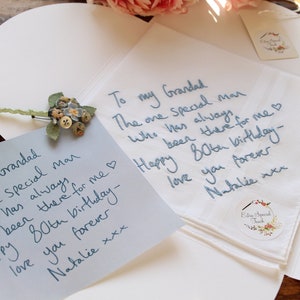 To my Grandad
The one special man
who has always
been there for me ♡
Happy 80th birthday -
love you forever
Natalie xxx
Grandad
special man
has always
been there for me ♡
80th birthday -
love you forever
Natalie xxx